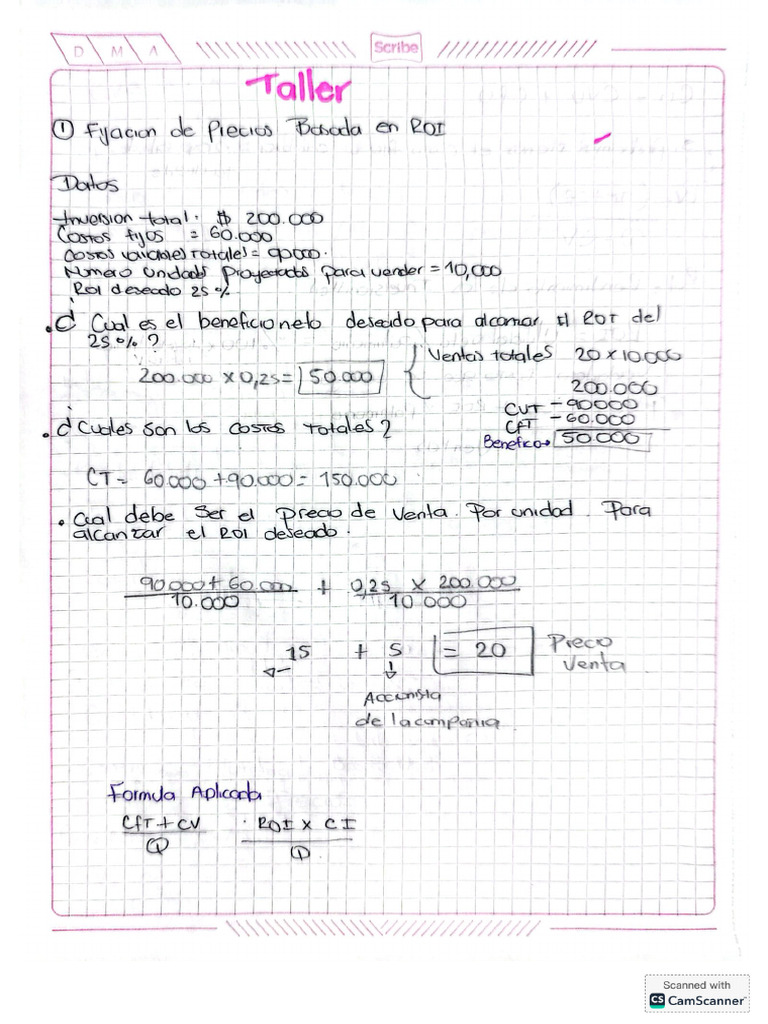 D M A
Scribe
Taller
① Fijacion de Precios Basada en ROI
Datos
Inversion total: $ 200.000
Costos fijos = 60.000
Costos variables totales = 90000.
Numero unidades Proyectadas para vender = 10,000
ROI deseado 25 %.
• ¿ Cual es el beneficio neto deseado para alcanzar el ROI del
25 % ?
200.000 x 0,25 = 50.000
Ventas totales 20 x 10.000
200.000
CVT - 90000
CFT - 60.000
Benefico → 50.000
• ¿ Cuales son los costos totales ?
CT = 60.000 + 90.000 = 150.000
• Cual debe Ser el Precio de Venta. Por unidad. Para
alcanzar el ROI deseado.
90.000 + 60.000 + 0,25 x 200.000
10.000 10.000
15 + 5 = 20 Precio
Venta
Accionista
de la compañia
Formula Aplicada
CFT + CV . ROI x CI
Q Q
Scanned with
CS CamScanner